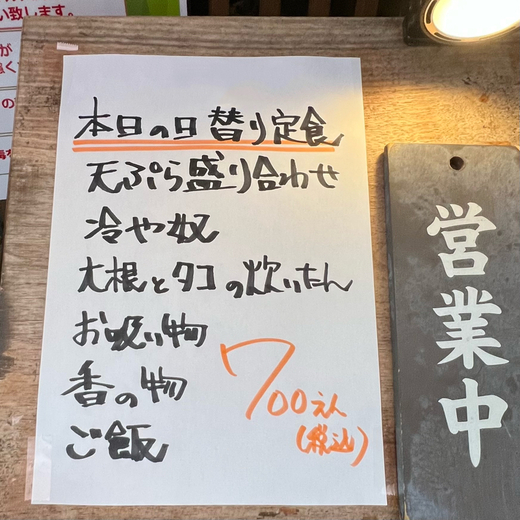 本日の日替り定食
天ぷら盛り合わせ
冷や奴
大根とタコの炊いたん
お吸い物
香の物
ご飯
700えん
(税込)
営業中
い致します。